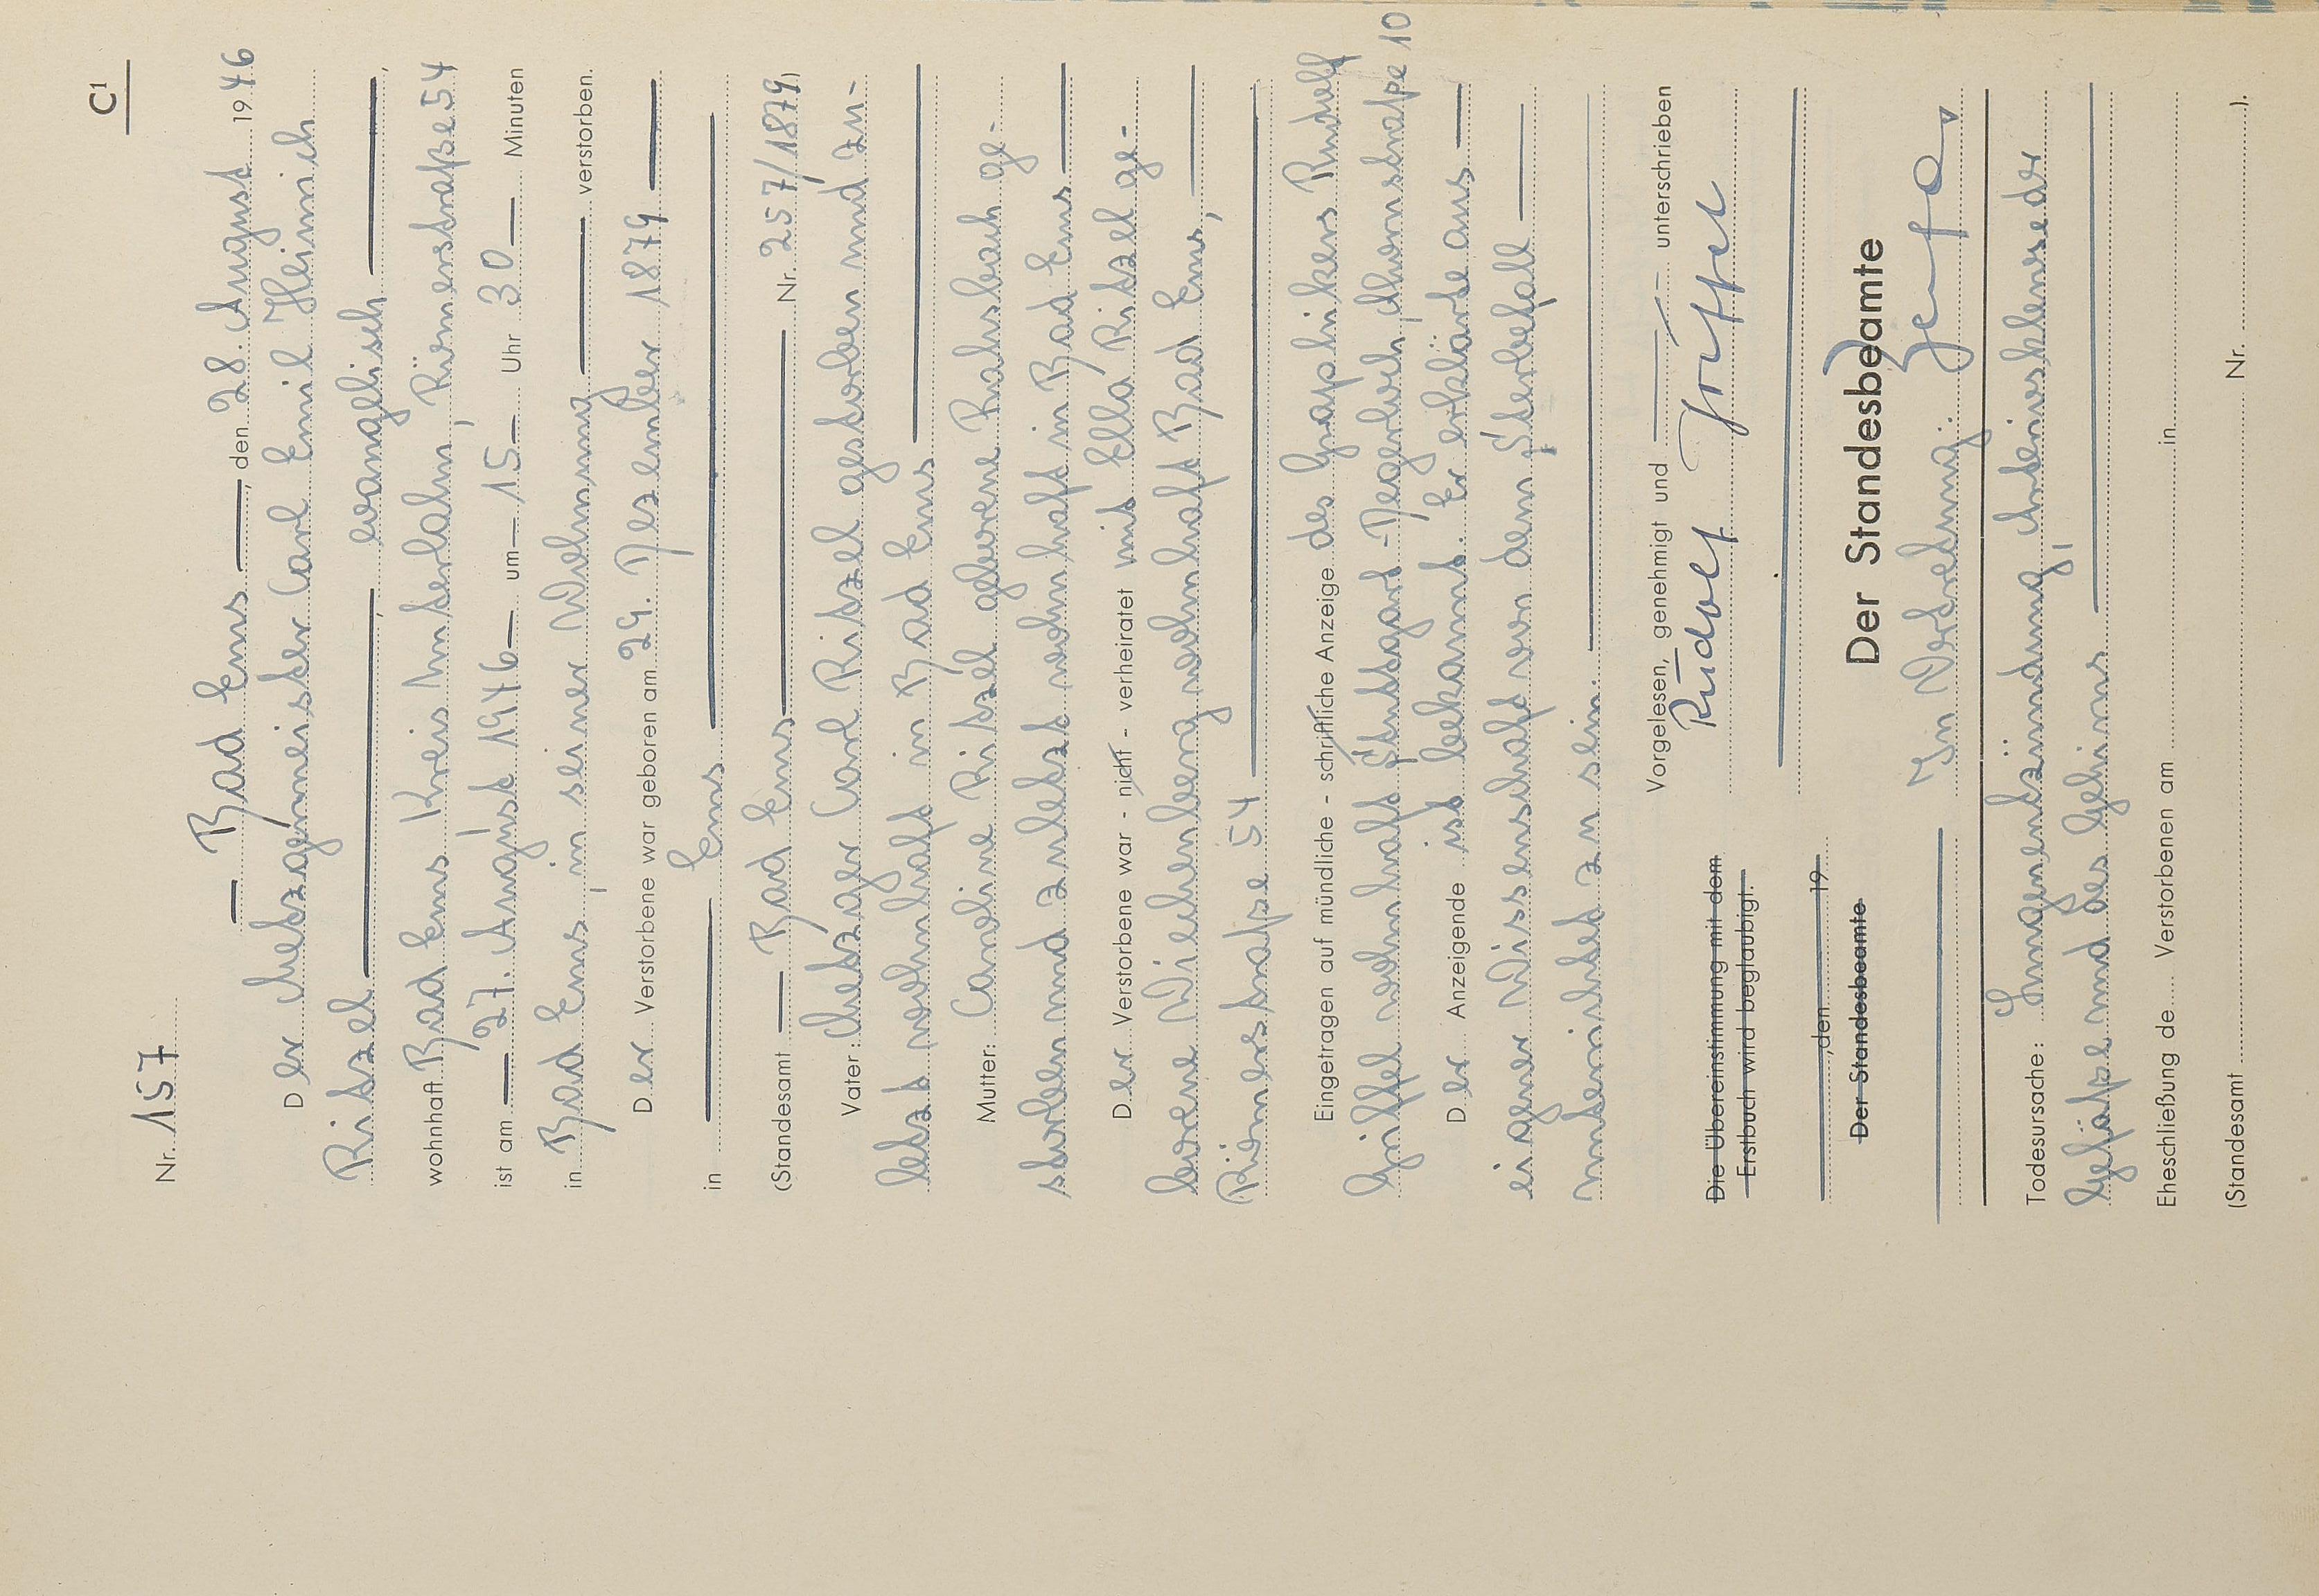 C1
Nr. 157
— Bad Ems —, den 28. August 1946
Der Metzgermeister Carl Emil Heinrich
Ritzel —, evangelisch —,
wohnhaft Bad Ems Kreis Unterlahn, Römerstraße 54
ist am — 27. August 1946 — um — 15 — Uhr 30 — Minuten
in Bad Ems, in seiner Wohnung — verstorben.
Der Verstorbene war geboren am 29. Dezember 1879 —
in — Ems —
(Standesamt — Bad Ems — Nr. 257/1879)
Vater: Metzger Carl Ritzel gestorben und zu-
letzt wohnhaft in Bad Ems —
Mutter: Caroline Ritzel geborene Rahsbach ge-
storben und zuletzt wohnhaft in Bad Ems —
Der Verstorbene war - nicht - verheiratet mit Ella Ritzel ge-
borene Wiechenberg wohnhaft Bad Ems, —
Römerstraße 54 —
Eingetragen auf mündliche - schriftliche Anzeige des Graphikers Rudolf
Griffel wohnhaft Stuttgart-Degerloch, 10
Der Anzeigende ist bekannt. Er erklärte aus —
eigener Wissenschaft von dem Sterbefall —
unterrichtet zu sein. —
Vorgelesen, genehmigt und — unterschrieben
Rudolf Griffel
Die Übereinstimmung mit dem
Erstbuch wird beglaubigt.
, den 19
Der Standesbeamte
Der Standesbeamte
In Vertretung:
Todesursache: Lungenentzündung, Arteriosklerose der
Gefäße und des Gehirns —
Eheschließung de Verstorbenen am in
(Standesamt Nr. ).